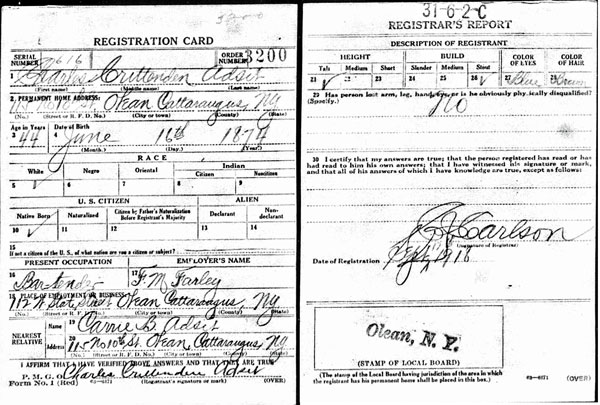 REGISTRATION CARD
SERIAL NUMBER 616 ORDER NUMBER 3200
1 Charles Crittenden Adsit
(First name) (Middle name) (Last name)
2 PERMANENT HOME ADDRESS:
115 No 10th St. Olean Cattaraugus, NY
(No.) (Street or R. F. D. No.) (City or town) (County) (State)
Age in Years Date of Birth
3 44 4 June 16th 1874
(Month.) (Day.) (Year.)
RACE
White Negro Oriental Indian
Citizen Noncitizen
5 ✓ 6 7 8 9
U. S. CITIZEN ALIEN
Native Born Naturalized Citizen by Father's Naturalization Before Registrant's Majority Declarant Non-declarant
10 ✓ 11 12 13 14
15
If not a citizen of the U. S., of what nation are you a citizen or subject?
PRESENT OCCUPATION EMPLOYER'S NAME
16 Bartender 17 F. M. Farley
18 PLACE OF EMPLOYMENT OR BUSINESS:
W. State Street Olean Cattaraugus, NY
(No.) (Street or R. F. D. No.) (City or town) (County) (State)
NEAREST RELATIVE
Name 19 Carrie B. Adsit
Address 20 115 No 10th St. Olean, Cattaraugus, NY
(No.) (Street or R. F. D. No.) (City or town) (County) (State)
I AFFIRM THAT I HAVE VERIFIED ABOVE ANSWERS AND THAT THEY ARE TRUE
P. M. G. O. Charles Crittenden Adsit
Form No. 1 (Red) (Registrant's signature or mark) (OVER)
31-6-2-C
REGISTRAR'S REPORT
DESCRIPTION OF REGISTRANT
HEIGHT BUILD COLOR OF EYES COLOR OF HAIR
Tall Medium Short Slender Medium Stout
21 ✓ 22 23 24 25 26 ✓ 27 Blue 28 Brown
29 Has person lost arm, leg, hand, eye, or is he obviously physically disqualified?
(Specify.) No
30 I certify that my answers are true; that the person registered has read or has
had read to him his own answers; that I have witnessed his signature or mark,
and that all of his answers of which I have knowledge are true, except as follows:
Carlson
(Signature of Registrar)
Date of Registration
Olean, N. Y.
(STAMP OF LOCAL BOARD)
(The stamp of the Local Board having jurisdiction of the area in which
the registrant has his permanent home shall be placed in this box.)
03-6171 (OVER)